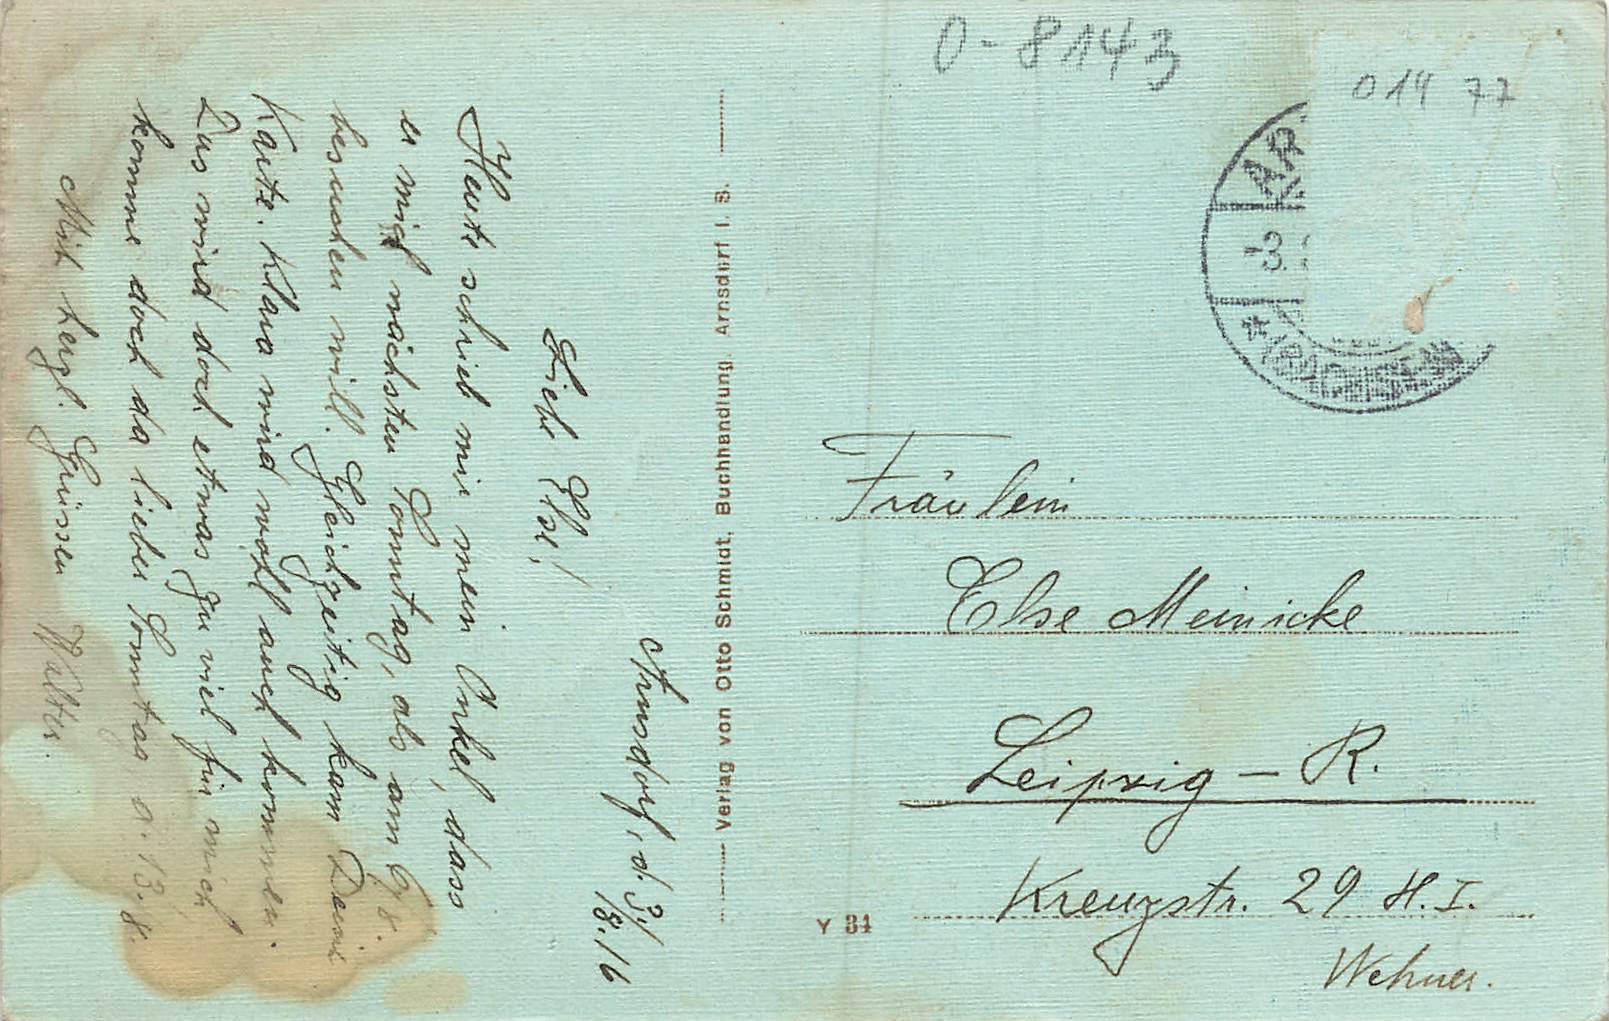 Arnsdorf, d. 3./8.16
Liebe Else,!
Heute schrieb mir mein Onkel, dass
er mich nächsten Sonntag, als am 6/8.
besuchen will. Gleichzeitig kam Deine
Karte. Klara wird wohl auch kommen.
Das wird doch etwas zu viel für mich
komme doch da lieber Sonntag d. 13./8.
Mit herzl. Grüssen Walter.
Verlag von Otto Schmidt, Buchhandlung. Arnsdorf i. S.
O-8143
014 77
AR
-3.
*(SACHSEN)
Fräulein
Else Meinicke
Leipzig – R.
Kreuzstr. 29 H. I.
Wehner.
Y 34